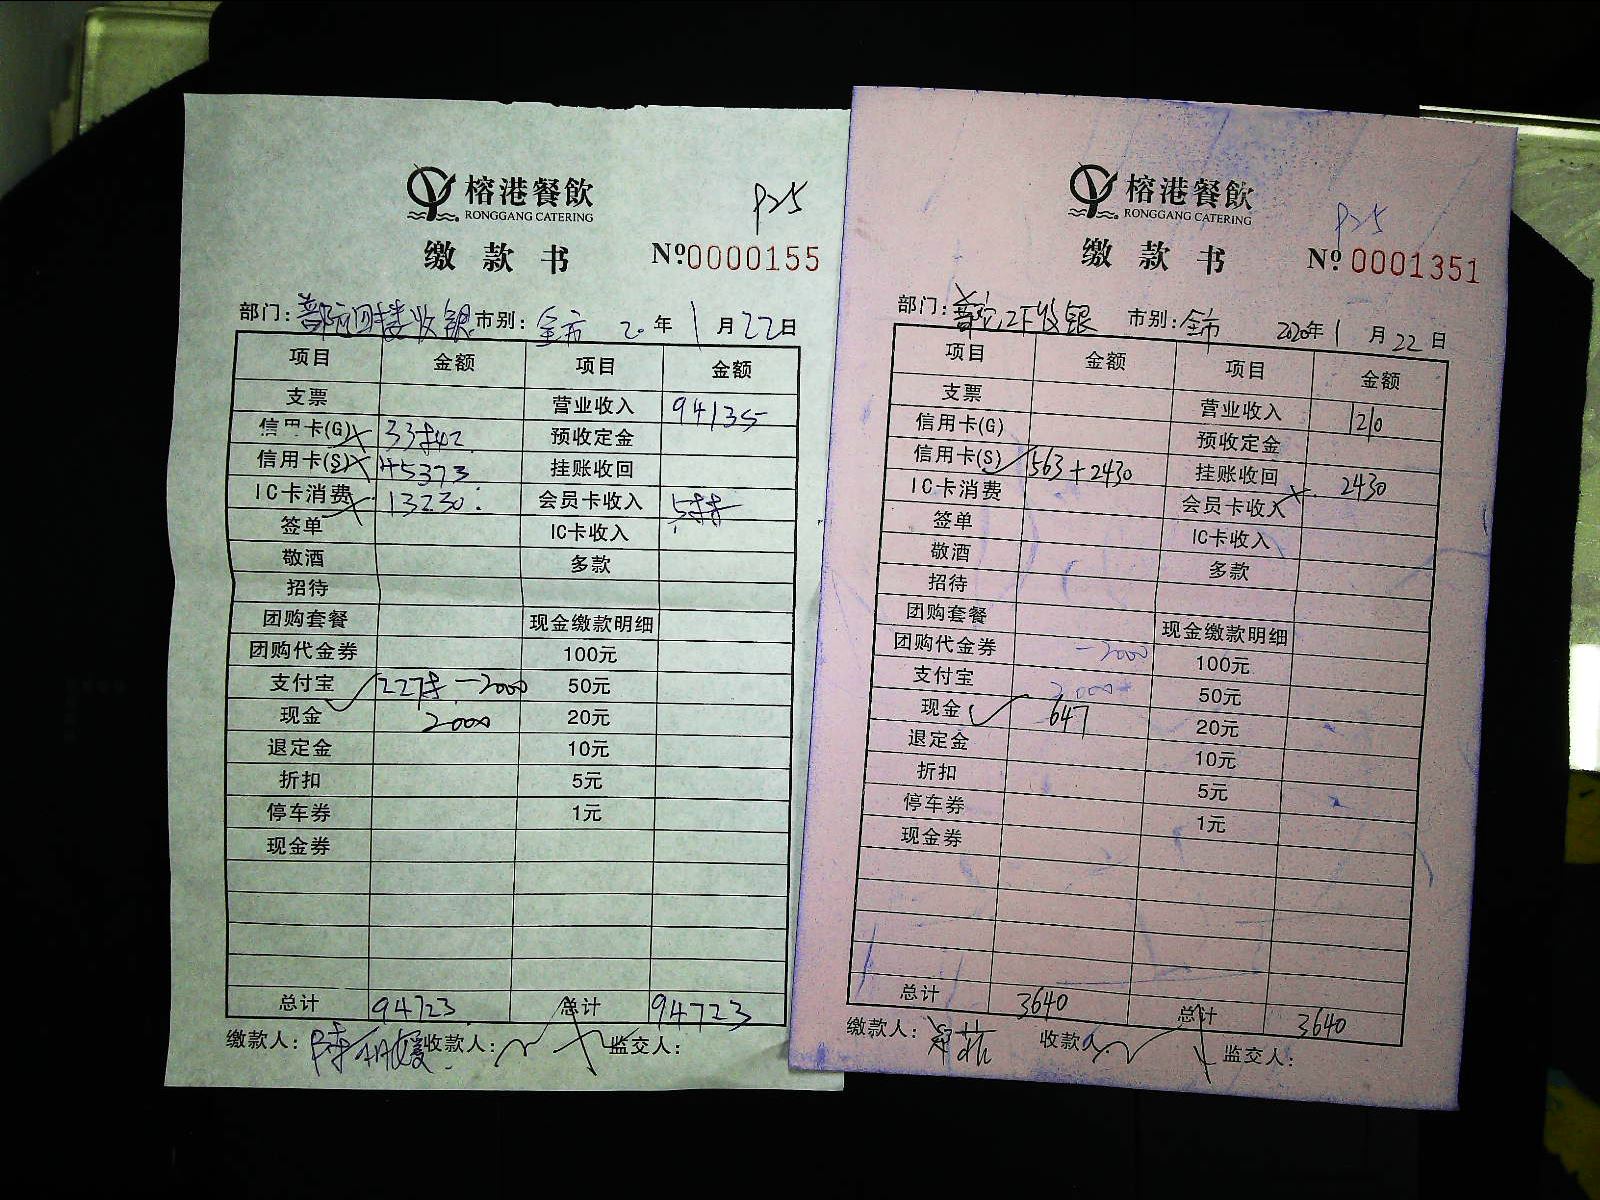 榕港餐飲
RONGGANG CATERING
P25
缴款书
Nº0000155
部门：普陀四楼收银 市别：全市 20年1月22日
项目 金额 项目 金额
支票 营业收入 94135
信用卡(G) 营业收入
信用卡(G) 预收定金
信用卡(S) 45373 挂账收回
IC卡消费 13230. 会员卡收入 588
签单 IC卡收入
敬酒 多款
招待
团购套餐 现金缴款明细
团购代金券 100元
支付宝 -2000 50元
现金 2000 20元
退定金 10元
折扣 5元
停车券 1元
现金券
总计 94723 总计 94723
缴款人： 收款人： 监交人：
榕港餐飲
RONGGANG CATERING
P25
缴款书
Nº 0001351
部门：普陀2F收银 市别：全市 2020年1月22日
项目 金额 项目 金额
支票 营业收入 1210
信用卡(G) 预收定金
信用卡(S) 563+2430 挂账收回 2430
IC卡消费 会员卡收入
签单 IC卡收入
敬酒 多款
招待
团购套餐 现金缴款明细
团购代金券 -2000 100元
支付宝 2000 50元
现金 647 20元
退定金 10元
折扣 5元
停车券 1元
现金券
总计 3640 总计 3640
缴款人： 收款人： 监交人：